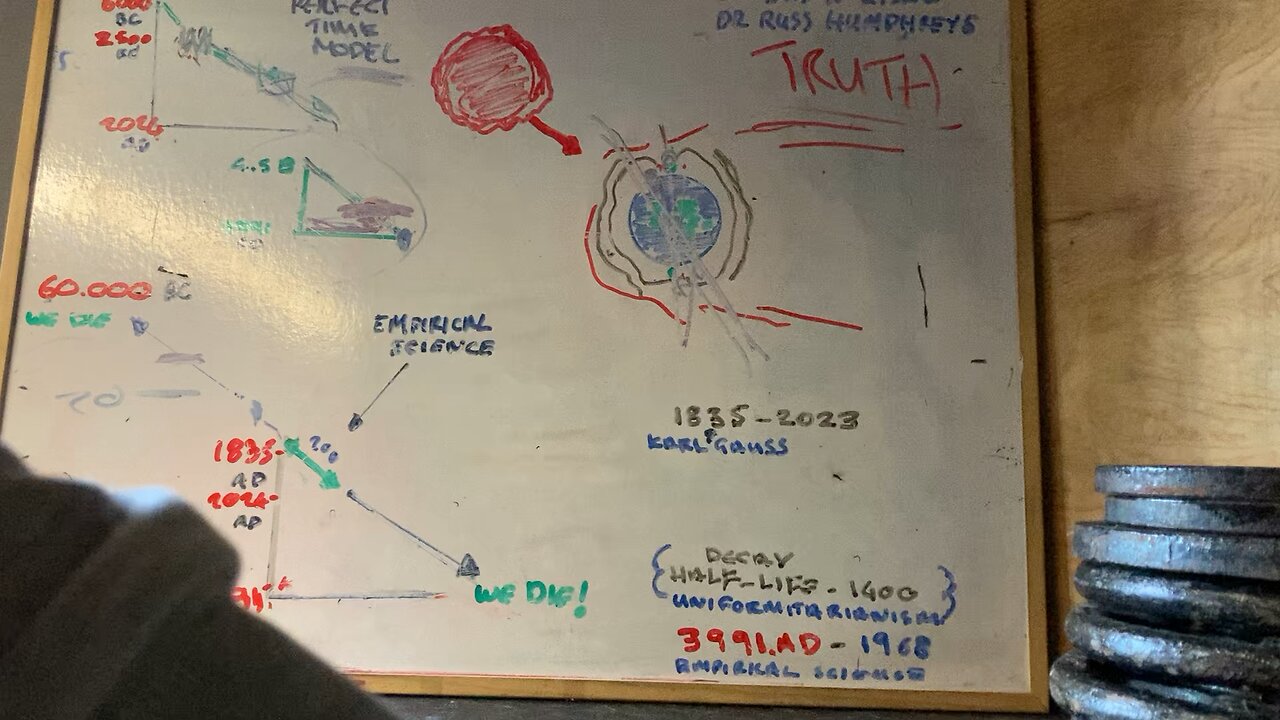 6000
BC
2500
BC
2024
AD
PERFECT
TIME
MODEL
DR RUSS HUMPHREYS
TRUTH
4.5 B
60.000 BC
WE DIE
EMPIRICAL
SCIENCE
20
1835-
AD
2024-
AD
20
WE DIE!
1835-2023
KARL GAUSS
DECAY
HALF-LIFE - 1400
UNIFORMITARIANISM
3991.AD - 1968
EMPIRKAL SCIENCE